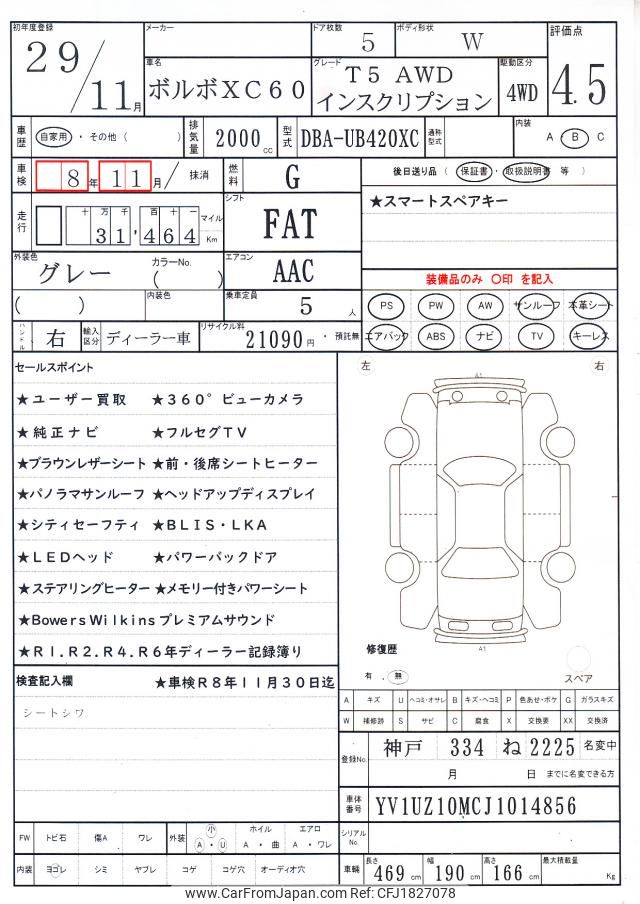 初年度登録 29/11月 メーカー ドア枚数 5 ボディ形状 W 評価点 4.5
車名 ボルボXC60 グレード T5 AWD インスクリプション 駆動区分 4WD
車歴 自家用・その他( ) 排気量 2000cc 型式 DBA-UB420XC 通称型式 内装 A・B C
車検 8年11月/ 抹消 燃料 G 後日送り品(保証書・取扱説明書 等)
走行 十万千百十一 31,464 マイル Km シフト FAT ★スマートスペアキー
外装色 グレー カラーNo. ( ) エアコン AAC 装備品のみ 〇印 を記入
( ) 内装色 乗車定員 5人 PS PW AW サンルーフ 本革シート
ハンドル 右 輸入区分 ディーラー車 リサイクル料 21090円・預託無 エアバック ABS ナビ TV キーレス
セールスポイント
★ユーザー買取 ★360°ビューカメラ
★純正ナビ ★フルセグTV
★ブラウンレザーシート ★前・後席シートヒーター
★パノラマサンルーフ ★ヘッドアップディスプレイ
★シティセーフティ ★BLIS・LKA
★LEDヘッド ★パワーバックドア
★ステアリングヒーター ★メモリー付きパワーシート
★Bowers Wilkinsプレミアムサウンド
★R1.R2.R4.R6年ディーラー記録簿り
左 右
A1
A1
修復歴
有 . 無
スペア
検査記入欄 ★車検R8年11月30日迄
シートシワ
A キズ U ヘコミ・オサレ B キズ・ヘコミ P 色あせ・ボケ G ガラスキズ
W 補修跡 S サビ C 腐食 X 交換要 XX 交換済
登録No. 神戸 334 ね 2225 名変中
月 日 までに名変できる方
車体番号 YV1UZ10MCJ1014856
FW トビ石 傷A ワレ 外装 小 A・U ホイル A・曲 エアロ A・ワレ シリアルNo.
内装 ヨゴレ シミ ヤブレ コゲ コゲ穴 オーディオ穴 車輌 長さ 469cm 幅 190cm 高さ 166cm 最大積載量 Kg
www.CarFromJapan.com CFJ1827078